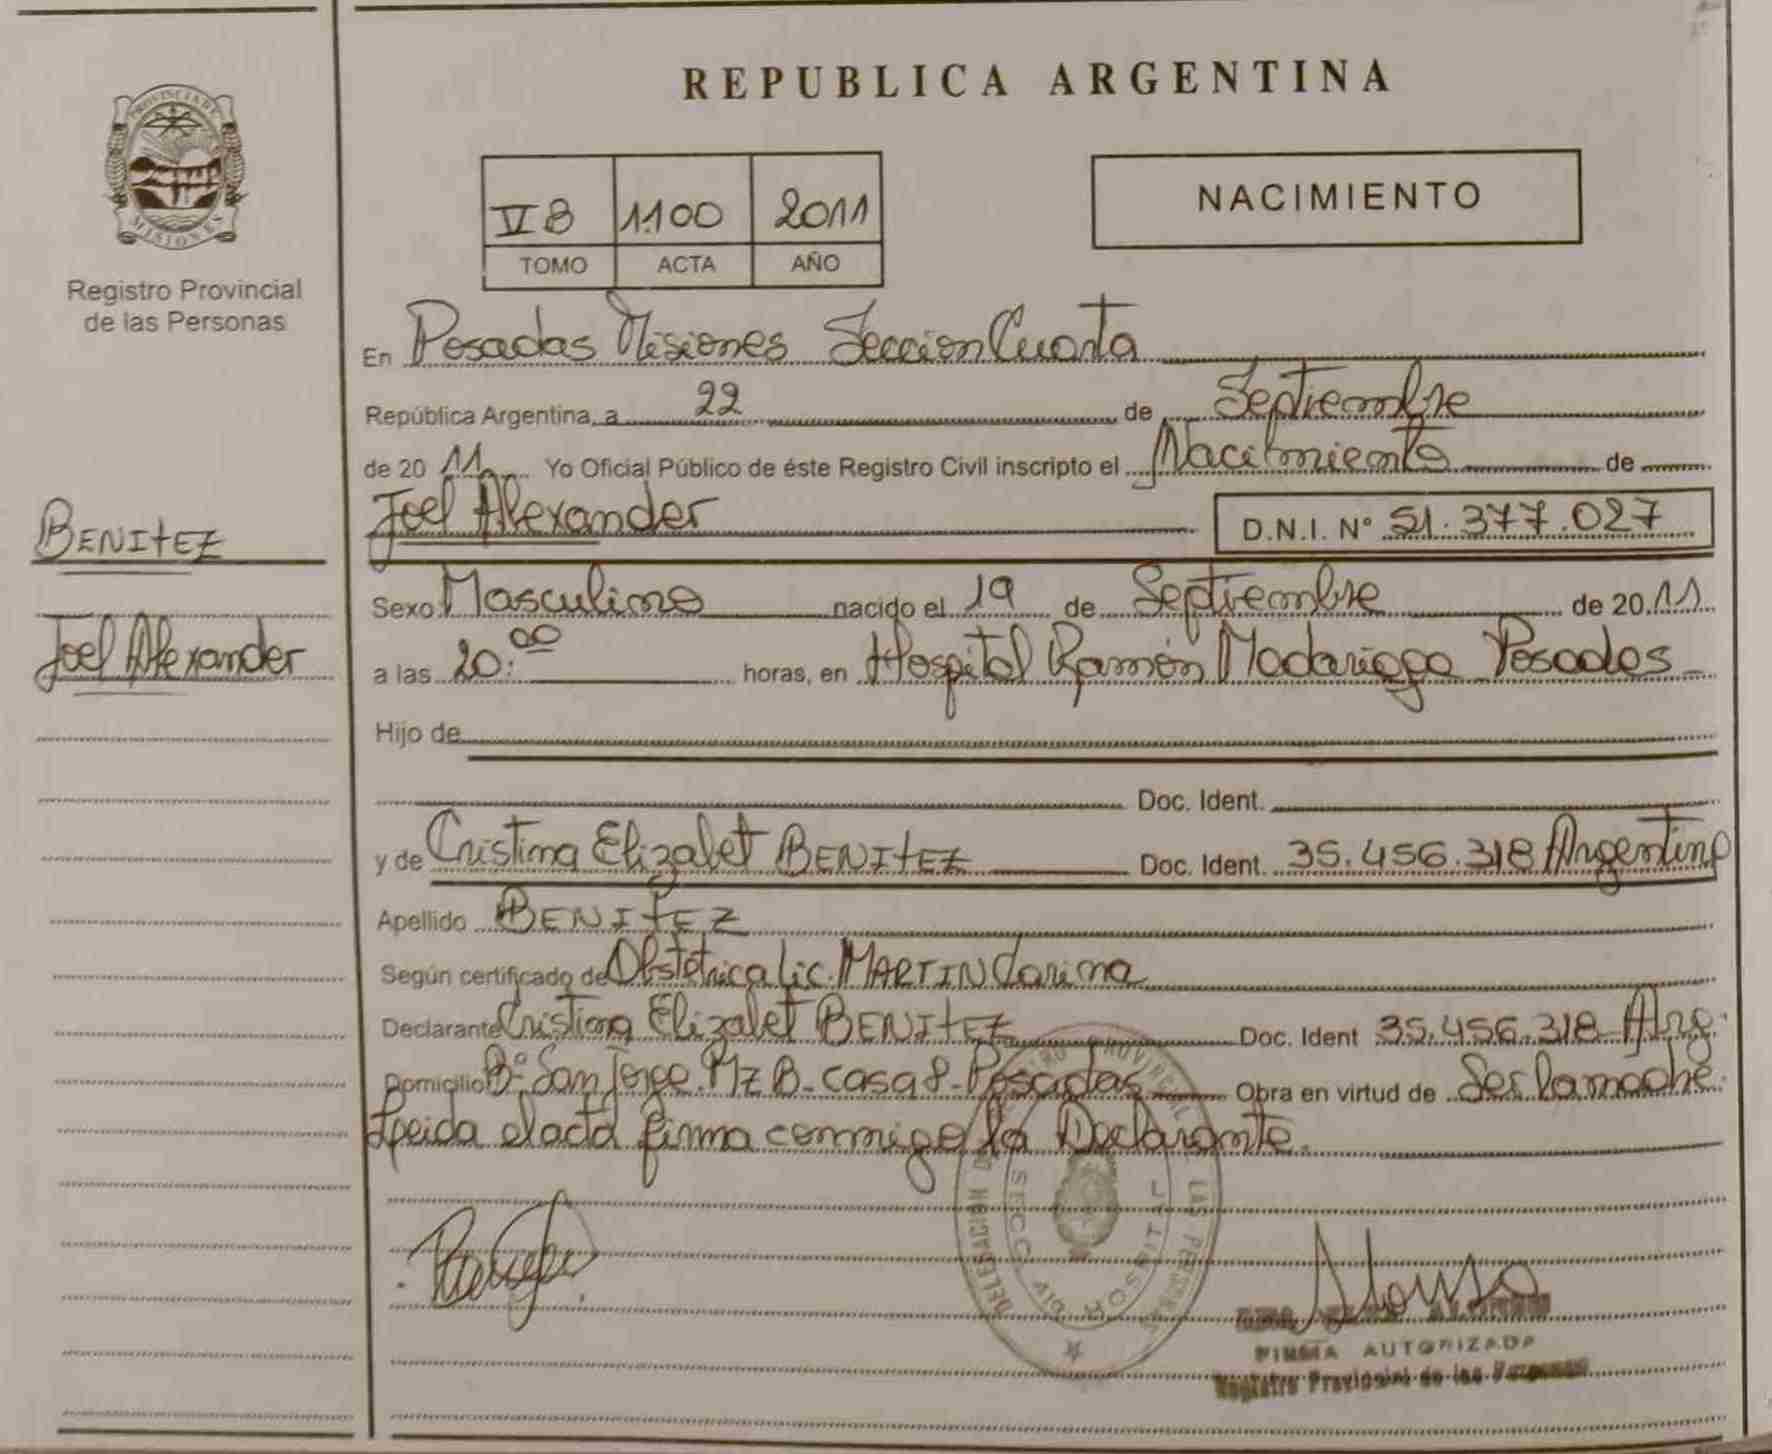 REPUBLICA ARGENTINA
PROVINCIA DE
MISIONES
Registro Provincial
de las Personas
VB 1100 2011
TOMO ACTA AÑO
NACIMIENTO
En Posadas Misiones Seccion Cuarta
República Argentina, a 22 de Septiembre
de 20 11 Yo Oficial Público de éste Registro Civil inscripto el Nacimiento de
BENITEZ
Joel Alexander
Joel Alexander D.N.I. Nº 51.377.027
Sexo Masculino nacido el 19 de Septiembre de 20 11
a las 20:00 horas, en Hospital Ramón Madariaga Posadas
Hijo de
Doc. Ident.
y de Cristina Elizabet BENITEZ Doc. Ident. 35.456.318 Argentina
Apellido BENITEZ
Según certificado de Obstetrica Lic. MARTIN Carina
Declarante Cristina Elizabet BENITEZ Doc. Ident 35.456.318 Arg.
Domicilio Bº San Jorge Mz B- casa 8- Posadas Obra en virtud de Ser la madre.
Leida el acta firma conmigo la Declarante.
FIRMA AUTORIZADA
Registro Provincial de las Personas